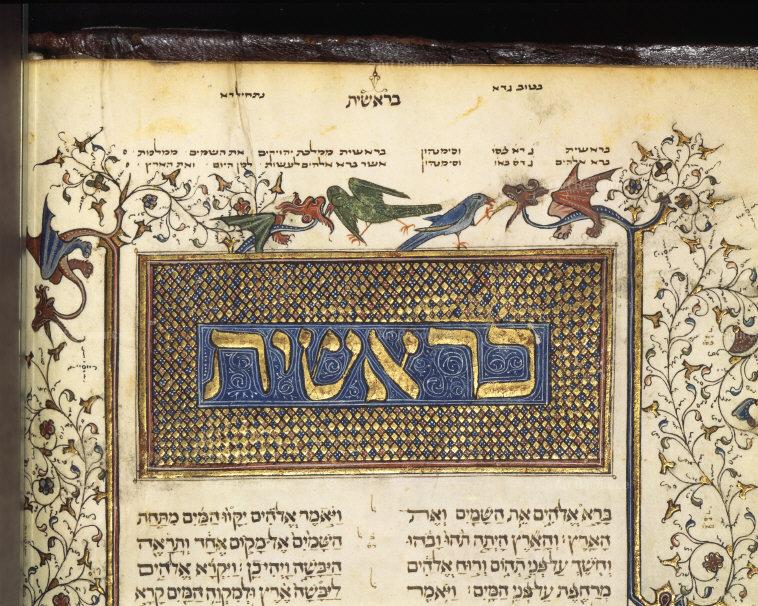 בטוב גדא
בראשית
נתחיל דא
בראשית וסימנהון בראשית ממלכת יהויקים את השמים
ברא אלהים וסימנהון אשר ברא אלהים לעשות למן היום ואת הארץ
בראשית
בָּרָא אֱלֹהִים אֵת הַשָּׁמַיִם וְאֵת
הָאָרֶץ׃ וְהָאָרֶץ הָיְתָה תֹהוּ וָבֹהוּ
וְחֹשֶׁךְ עַל פְּנֵי תְהוֹם וְרוּחַ אֱלֹהִים
מְרַחֶפֶת עַל פְּנֵי הַמָּיִם׃ וַיֹּאמֶר
וַיֹּאמֶר אֱלֹהִים יִקָּווּ הַמַּיִם מִתַּחַת
הַשָּׁמַיִם אֶל מָקוֹם אֶחָד וְתֵרָאֶה
הַיַּבָּשָׁה וַיְהִי כֵן׃ וַיִּקְרָא אֱלֹהִים
לַיַּבָּשָׁה אֶרֶץ וּלְמִקְוֵה הַמַּיִם קָרָא